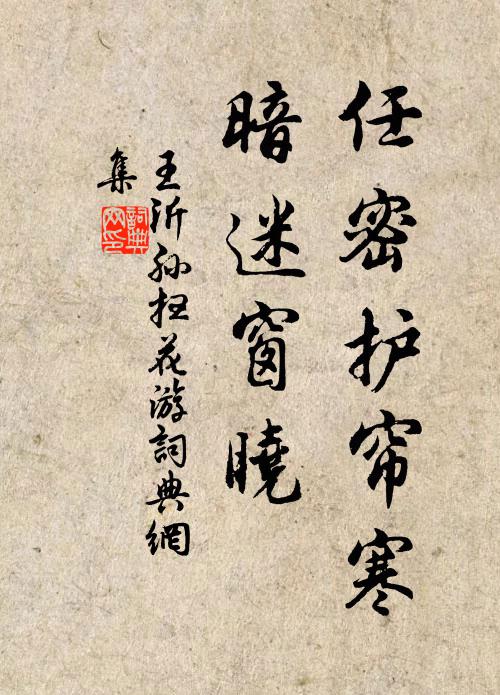 任密护帘寒
暗迷窗曉
王沂孙扫花游詞典網
集
詞典
网印